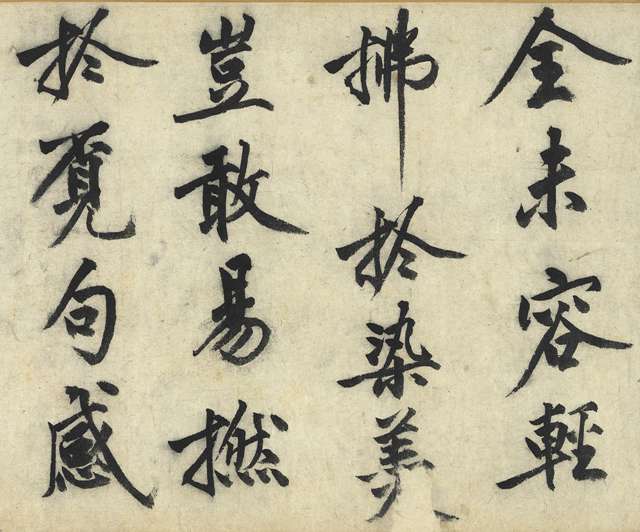 全未容輕
拂扵染美
豈敢易撚
扵覓句感